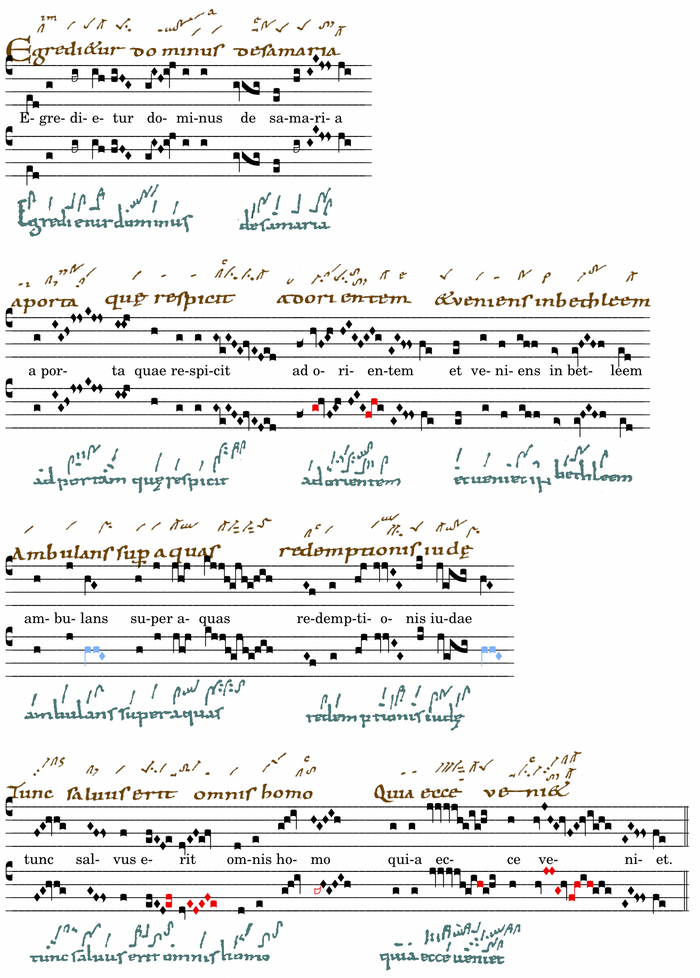 Egredi&ur dominus desamaria
E- gre- di- e- tur do- mi-nus de sa-ma-ri- a
Egredieturdominus desamaria
aporta quę respicit adorientem &veniensinbethleem
a por- ta quae re-spi-cit ad o- ri- en-tem et ve- ni- ens in bet- leem
adportam quęrespicit adorientem etueniet in bethleem
Ambulans sup aquas redemptionis iudę
am- bu- lans su-per a- quas re-demp-ti- o- nis iu-dae
ambulans superaquas redemptionis iudę
Tunc saluus erit omnis homo Quia ecce veni&
tunc sal- vus e- rit om-nis ho- mo qui-a ec- ce ve- ni- et.
tuncsaluus erit omnis homo quia ecce ueniet